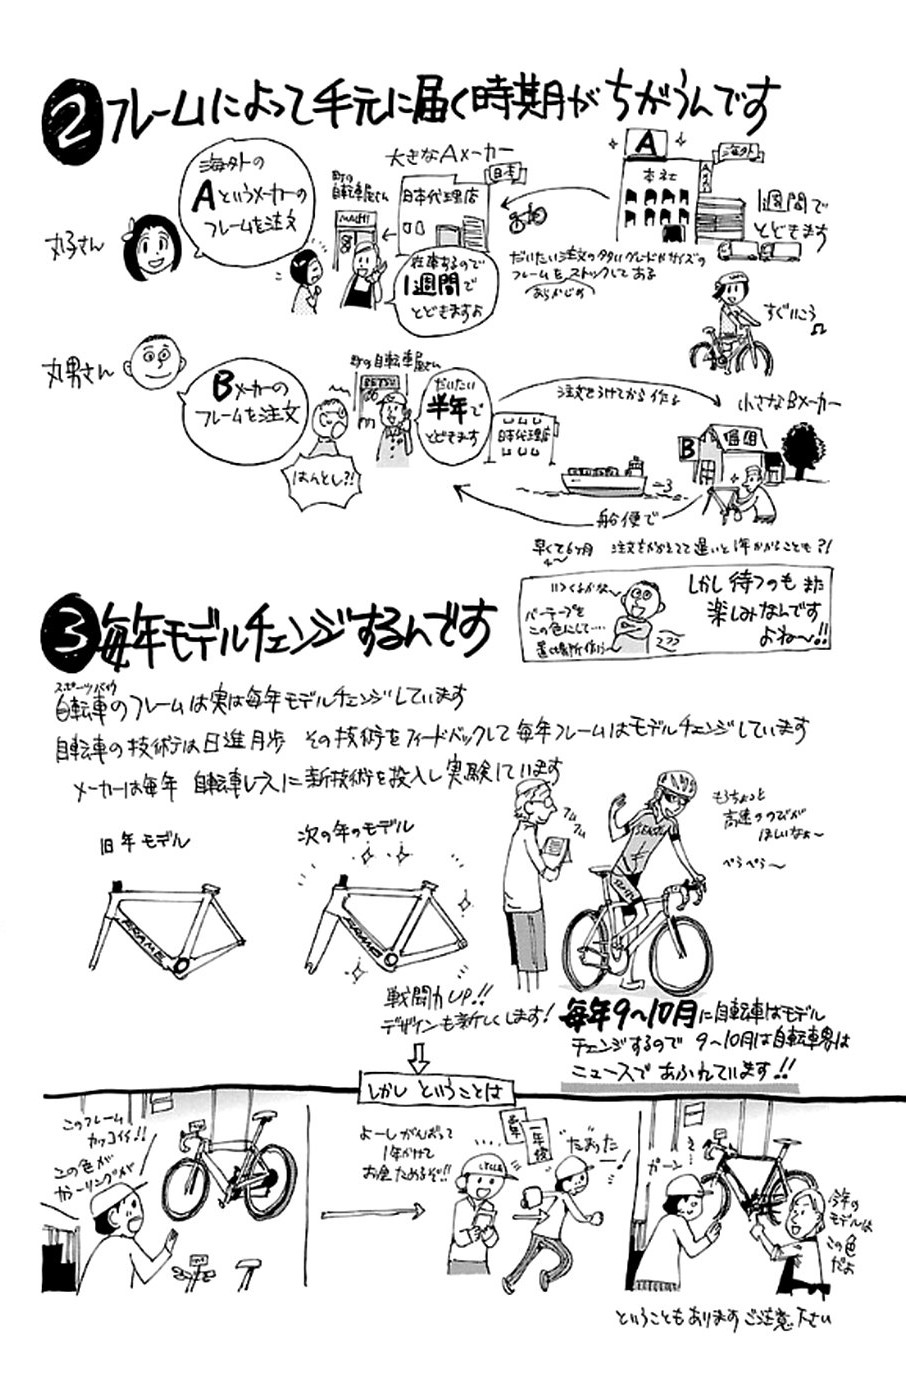 ②フレームによって手元に届く時期がちがうんです
丸子さん
海外の
Aというメーカーの
フレームを注文
町の
自転車屋さん
大きなAメーカー
日本
日本代理店
在庫するので
1週間で
とどきますよ
A
本社
海外
1週間で
とどきます
だいたい注文の多いグレードやサイズの
フレームをストックしてある
あらかじめ
すぐいこう
丸男さん
Bメーカーの
フレームを注文
はんとし?!
町の自転車屋さん
だいたい
半年で
とどきます
日本代理店
注文をうけてから作る
小さなBメーカー
B
船便で
早くて6ヶ月 注文をかかえてて遅いと1年かかることも?!
いつくるかな〜
バーテープを
この色にして‥‥
置き場所作ろ〜
フフフ
しかし待つのもまた
楽しみなんです
よね〜!!
③毎年モデルチェンジするんです
スポーツバイク
自転車のフレームは実は毎年モデルチェンジしています
自転車の技術は日進月歩 その技術をフィードバックして毎年フレームはモデルチェンジしています
メーカーは毎年 自転車レースに新技術を投入し実験しています
旧年モデル
次の年のモデル
FRAME
FRAME
フムフム
もうちょっと
高速ののびが
ほしいなぁ〜
ぺらぺら〜
戦闘力UP!!
デザインも新しくします!
毎年9〜10月に自転車はモデル
チェンジするので 9〜10月は自転車界は
ニュースであふれています!!
しかし ということは
このフレーム
カッコイイ!!
この色が
よーしがんばって
1年かけて
お金ためるぞ!!
CYCLE
一年後
たまった
ー!
ガーン…
今年の
モデルは
この色
だよ
ということもあります ご注意下さい